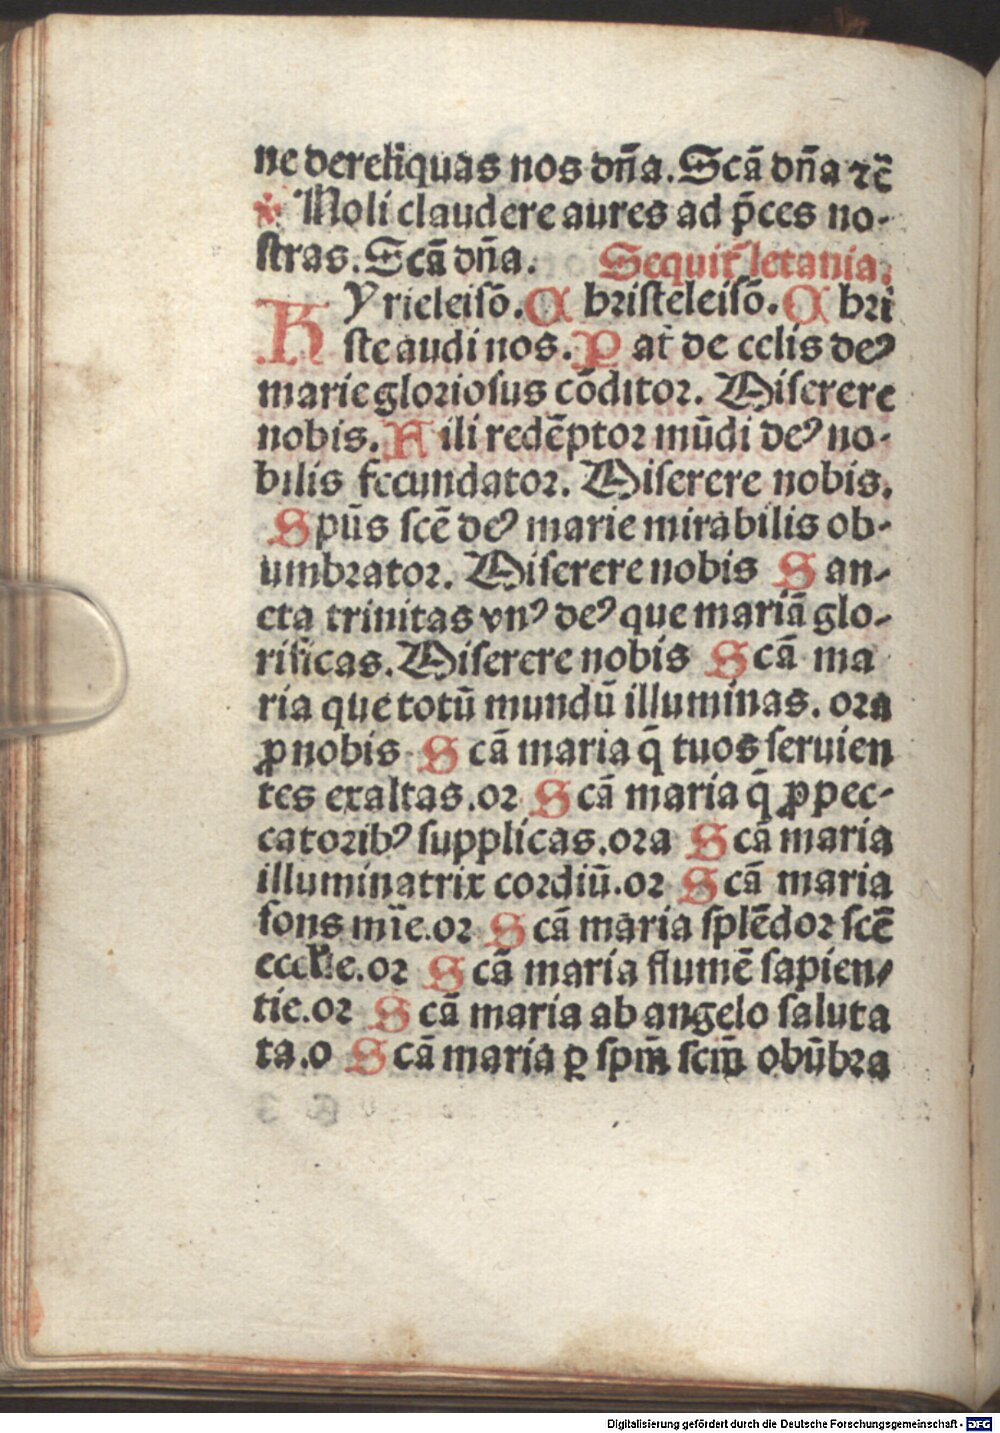 ne dereliquas nos dña. Scã dña ⁊c̃
Noli claudere aures ad p̃ces no-
stras. Scã dña. Sequit̃ letania.
Kyrieleisõ. Christeleisõ. Chri
ste audi nos. Pat̃ de celis deꝰ
marie gloriosus cõditor. Miserere
nobis. Fili redẽptor mũdi deꝰ no-
bilis fecundator. Miserere nobis.
Spũs scẽ deꝰ marie mirabilis ob-
umbrator. Miserere nobis San-
cta trinitas vnꝰ deꝰ que mariã glo-
rificas. Miserere nobis Scã ma
ria que totũ mundũ illuminas. ora
ꝓ nobis Scã maria q̃ tuos seruien
tes exaltas. or Scã maria q̃ ꝓ pec-
catoribꝰ supplicas. ora Scã maria
illuminatrix cordiũ. or Scã maria
fons mĩe. or Scã maria splẽdor scẽ
eccl̃ie. or Scã maria flumẽ sapien-
tie. or Scã maria ab angelo saluta
ta. o Scã maria ꝑ spm̃ scm̃ obũbra
Digitalisierung gefördert durch die Deutsche Forschungsgemeinschaft - DFG